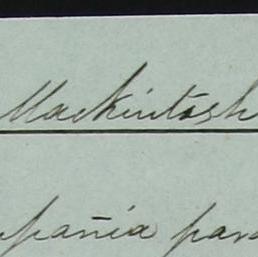 Mackintosh
mpañia para